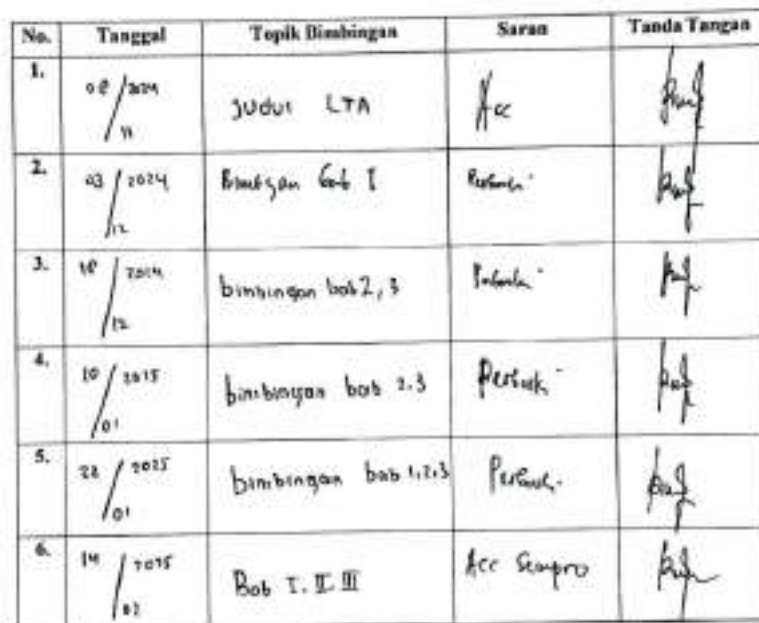 No. Tanggal Topik Bimbingan Saran Tanda Tangan
1. 08/11 2024 Judul LTA Acc
2. 03/12 2024 Bimbingan bab I Perbaiki
3. 18/12 2024 bimbingan bab 2, 3 Perbaiki
4. 10/01 2025 bimbingan bab 2.3 Perbaiki
5. 22/01 2025 bimbingan bab 1,2,3 Perbaiki
6. 14/02 2025 Bab I. II. III Acc Sempro